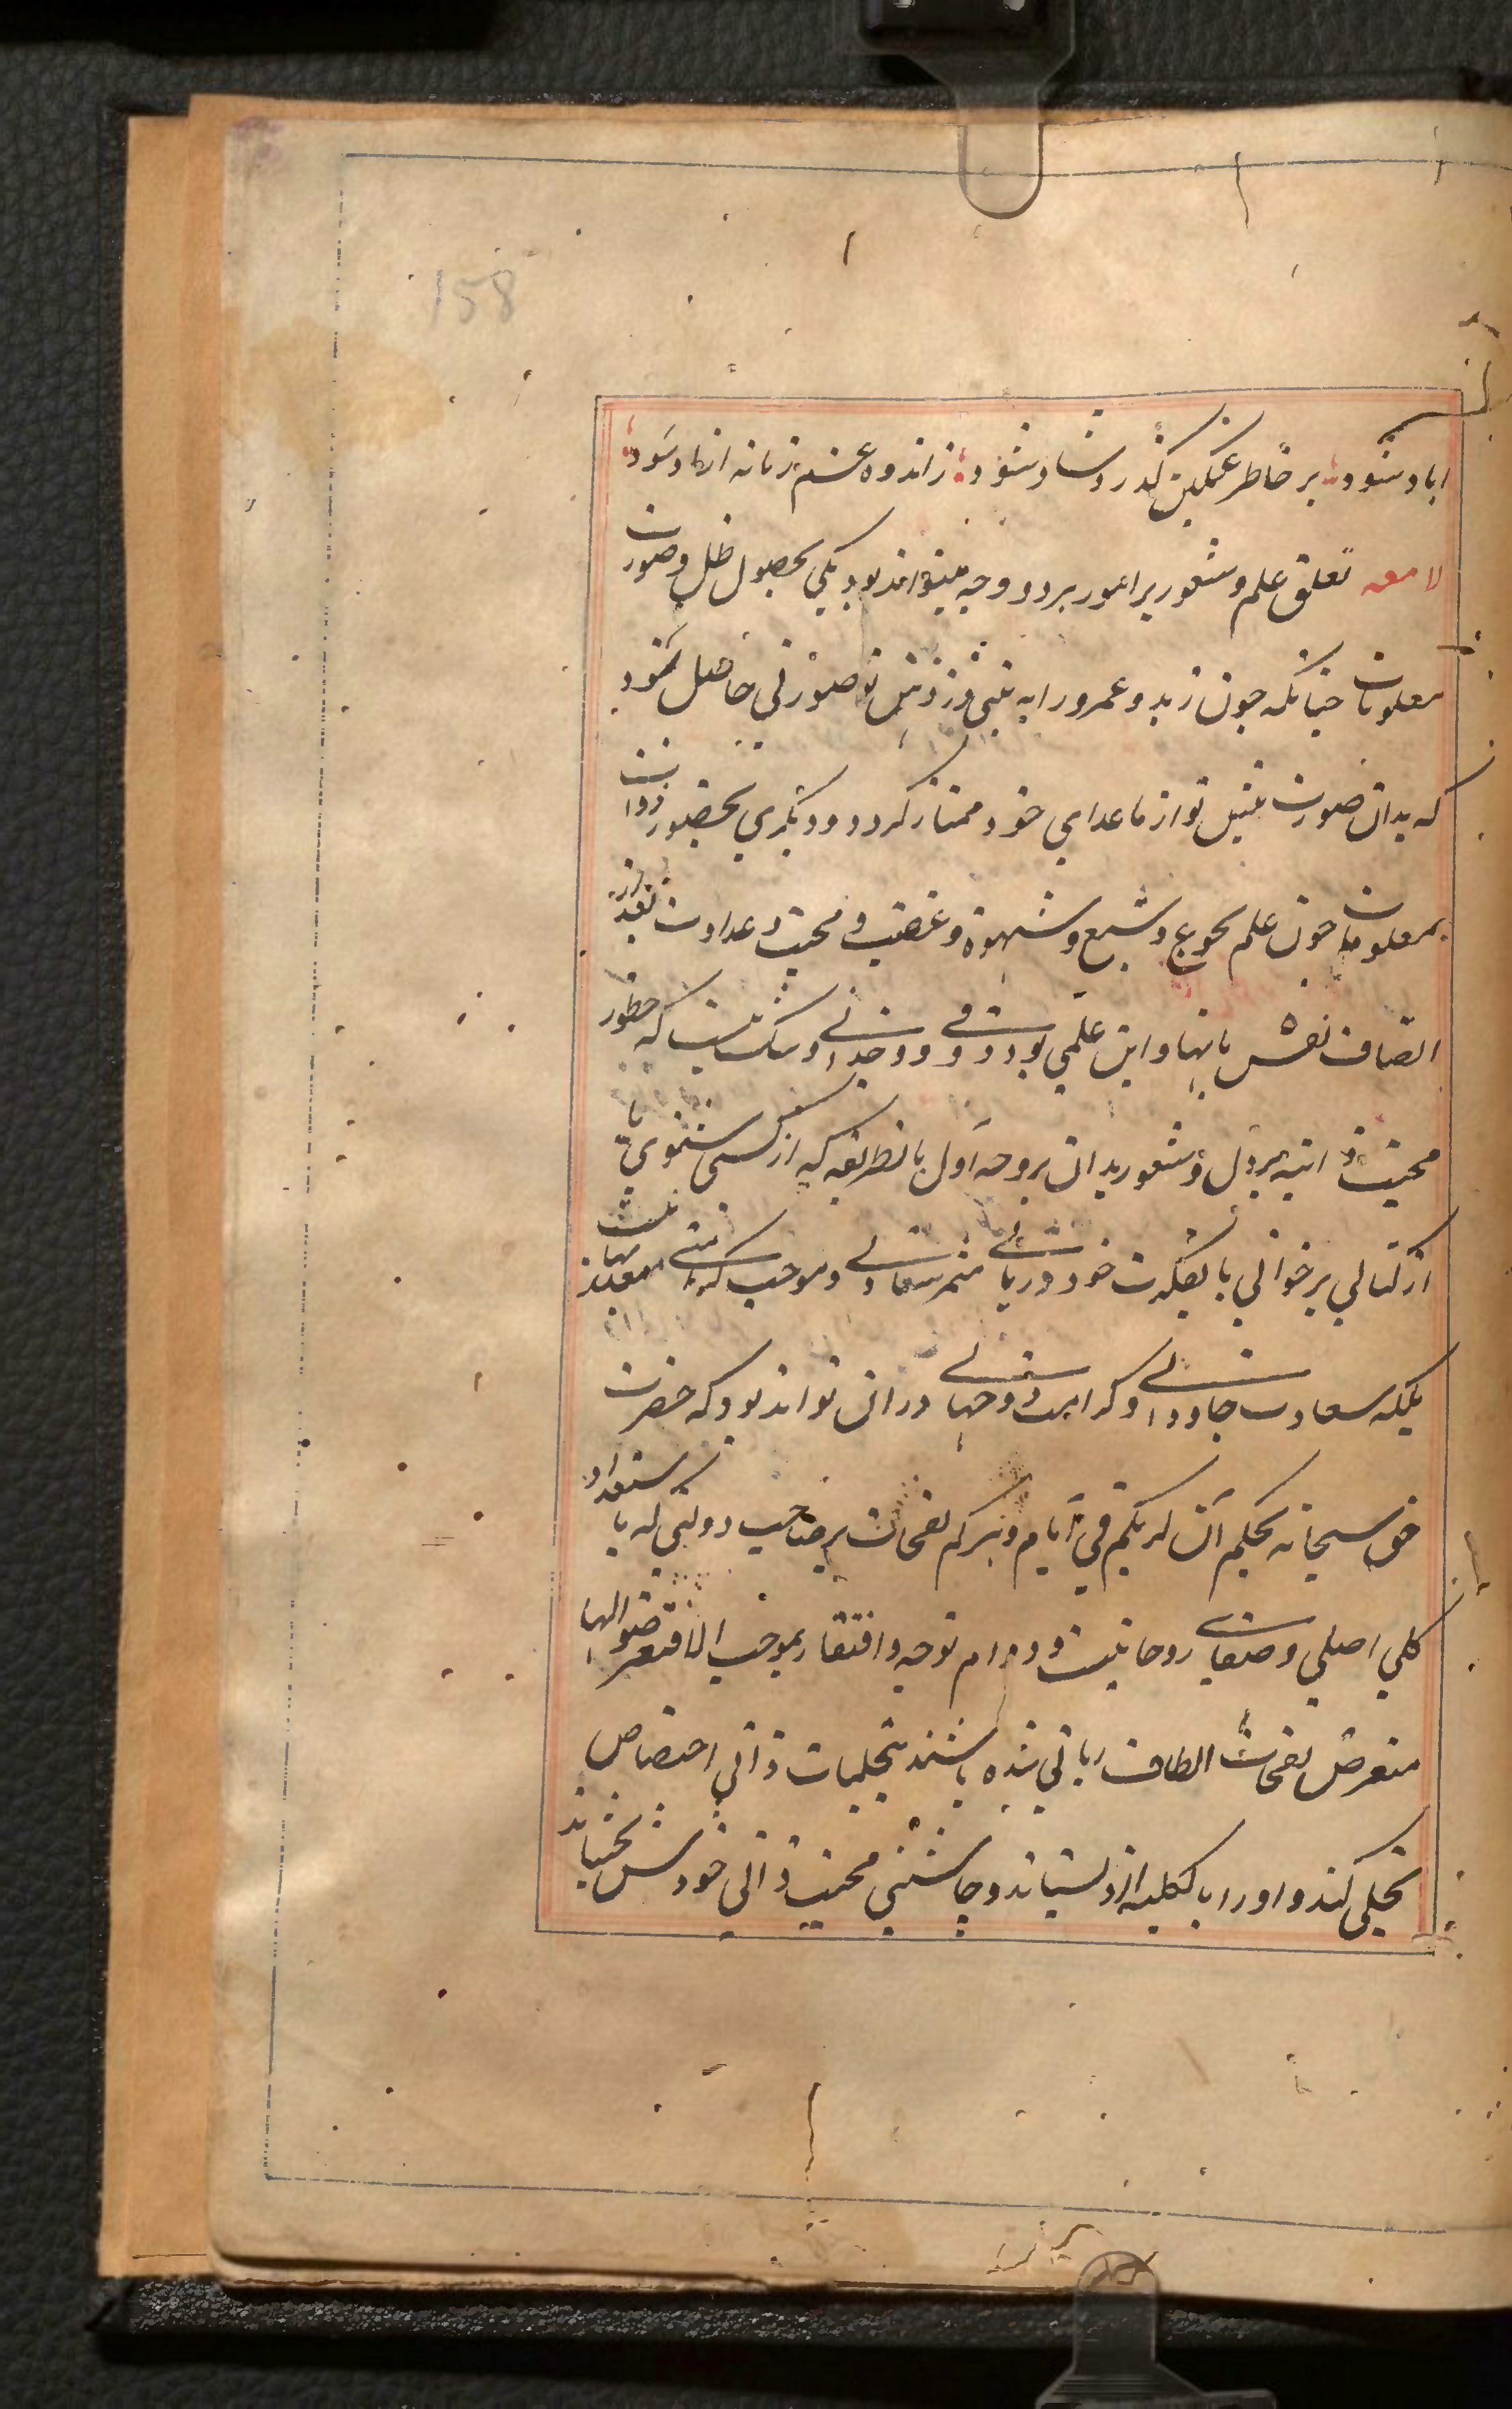 158
اباد شود بر خاطر غمگین گذرد شاد شود ز اندوه غم زمانه ازاد شود
لامعه تعلق علم و شعور بر امور بر دو وجه میتواند بود یکی بحصول ظل و صورت
معلومات چنانکه چون زید و عمرو را به بینی در ذهن تو صورتی حاصل شود
که بدان صورت پیش تو از ماعدای خود ممتاز گردد و دیگری بحضور ذوات
معلومات چون علم بجوع و شبع و شهوة و غضب و محبت و عداوت بر تقدیر
اتصاف نفس بانها و این علمی بود ذوقی و وجدانی و شک نیست که حظور
محبت ذاتیه بر دل و شعور بدان بر وجه اول بانطریقه که از کسی شنوی یا
از کتابی برخوانی یا بفکرت خود دریابی مثمر سعادتی و موجب کرامتی معتد بها نیست
بلکه سعادت جاودانی و کرامت دو جهانی در ان تواند بود که حضرت
حق سبحانه بحکم ان لربکم فی ایام دهرکم نفحات بر صاحب دولتی که با استعداد
کلی اصلی و صفای روحانیت و دوام توجه و افتقار بموجب الا فتعرضوا لها
متعرض نفحات الطاف ربانی شده باشند بتجلیات ذاتی اختصاصی
تجلی کند و اورا بالکلیه از و بستاند و چاشنی محبت ذاتی خودش بچشاند